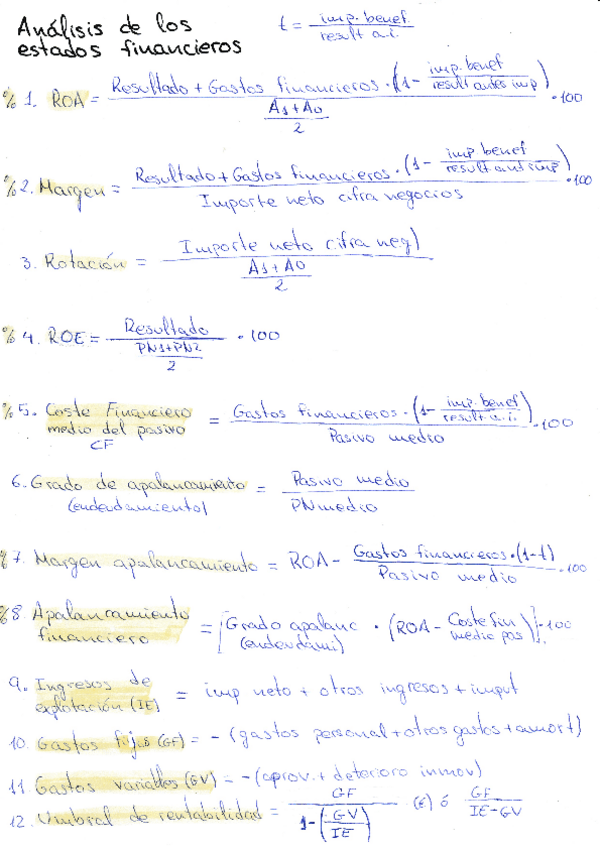 Análisis de los
estados financieros
t = imp. benef. / result a.i.
% 1. ROA = Resultado + Gastos financieros · (1 - imp. benef / result antes imp) / (A1 + A0 / 2) · 100
% 2. Margen = Resultado + Gastos financieros · (1 - imp benef / result. ant imp) / Importe neto cifra negocios · 100
3. Rotación = Importe neto cifra neg) / (A1 + A0 / 2)
% 4. ROE = Resultado / (PN1 + PN2 / 2) · 100
% 5. Coste Financiero
medio del pasivo
CF
= Gastos financieros · (1 - imp. benef / result. a.i.) / Pasivo medio · 100
6. Grado de apalancamiento
(endeudamiento)
= Pasivo medio / PN medio
% 7. Margen apalancamiento = ROA - Gastos financieros · (1 - t) / Pasivo medio · 100
% 8. Apalancamiento
financiero
= [Grado apalanc (endeudami) · (ROA - Coste fin medio pas)] · 100
9. Ingresos de
explotación (IE)
= imp neto + otros ingresos + imput
10. Gastos fijos (GF) = - (gastos personal + otros gastos + amort)
11. Gastos variables (GV) = - (aprov. + deterioro inmov)
12. Umbral de rentabilidad = GF / 1 - (GV / IE) (€) ó GF / IE - GV